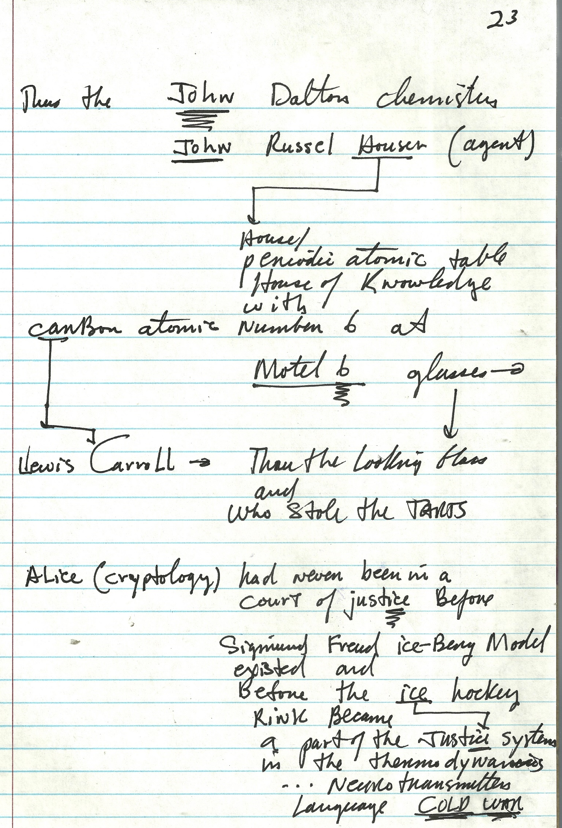 23
Thus the John Dalton chemistry
John Russel Houser (agent)
House/
periodic atomic table
House of Knowledge
with
carbon atomic Number 6 at
Motel 6 glasses →
Lewis Carroll → Thru the Looking Glass
and
Who Stole the TARTS
Alice (cryptology) had never been in a
court of justice Before
Sigmund Freud ice-Berg Model
existed and
Before the ice hockey
Rink Became
a part of the Justice System
in the thermodynamics
... Neurotransmitters
Language COLD WAR